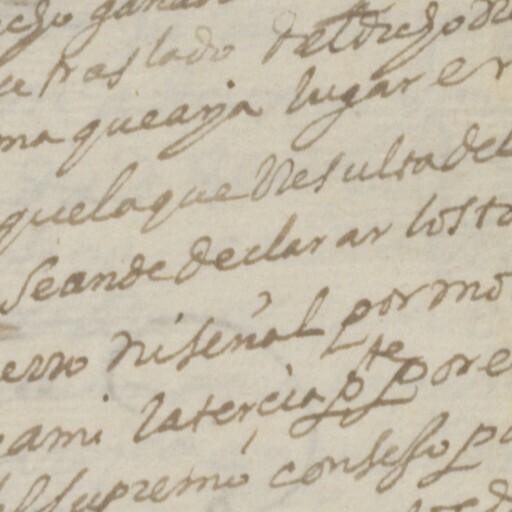 cho ganad
traslado del dicho
ma que aya lugar en
que lo que Resulta del
Se an de declarar los to
erro ni señal por mo
a mi la tercia pte por e
el supremo consejo